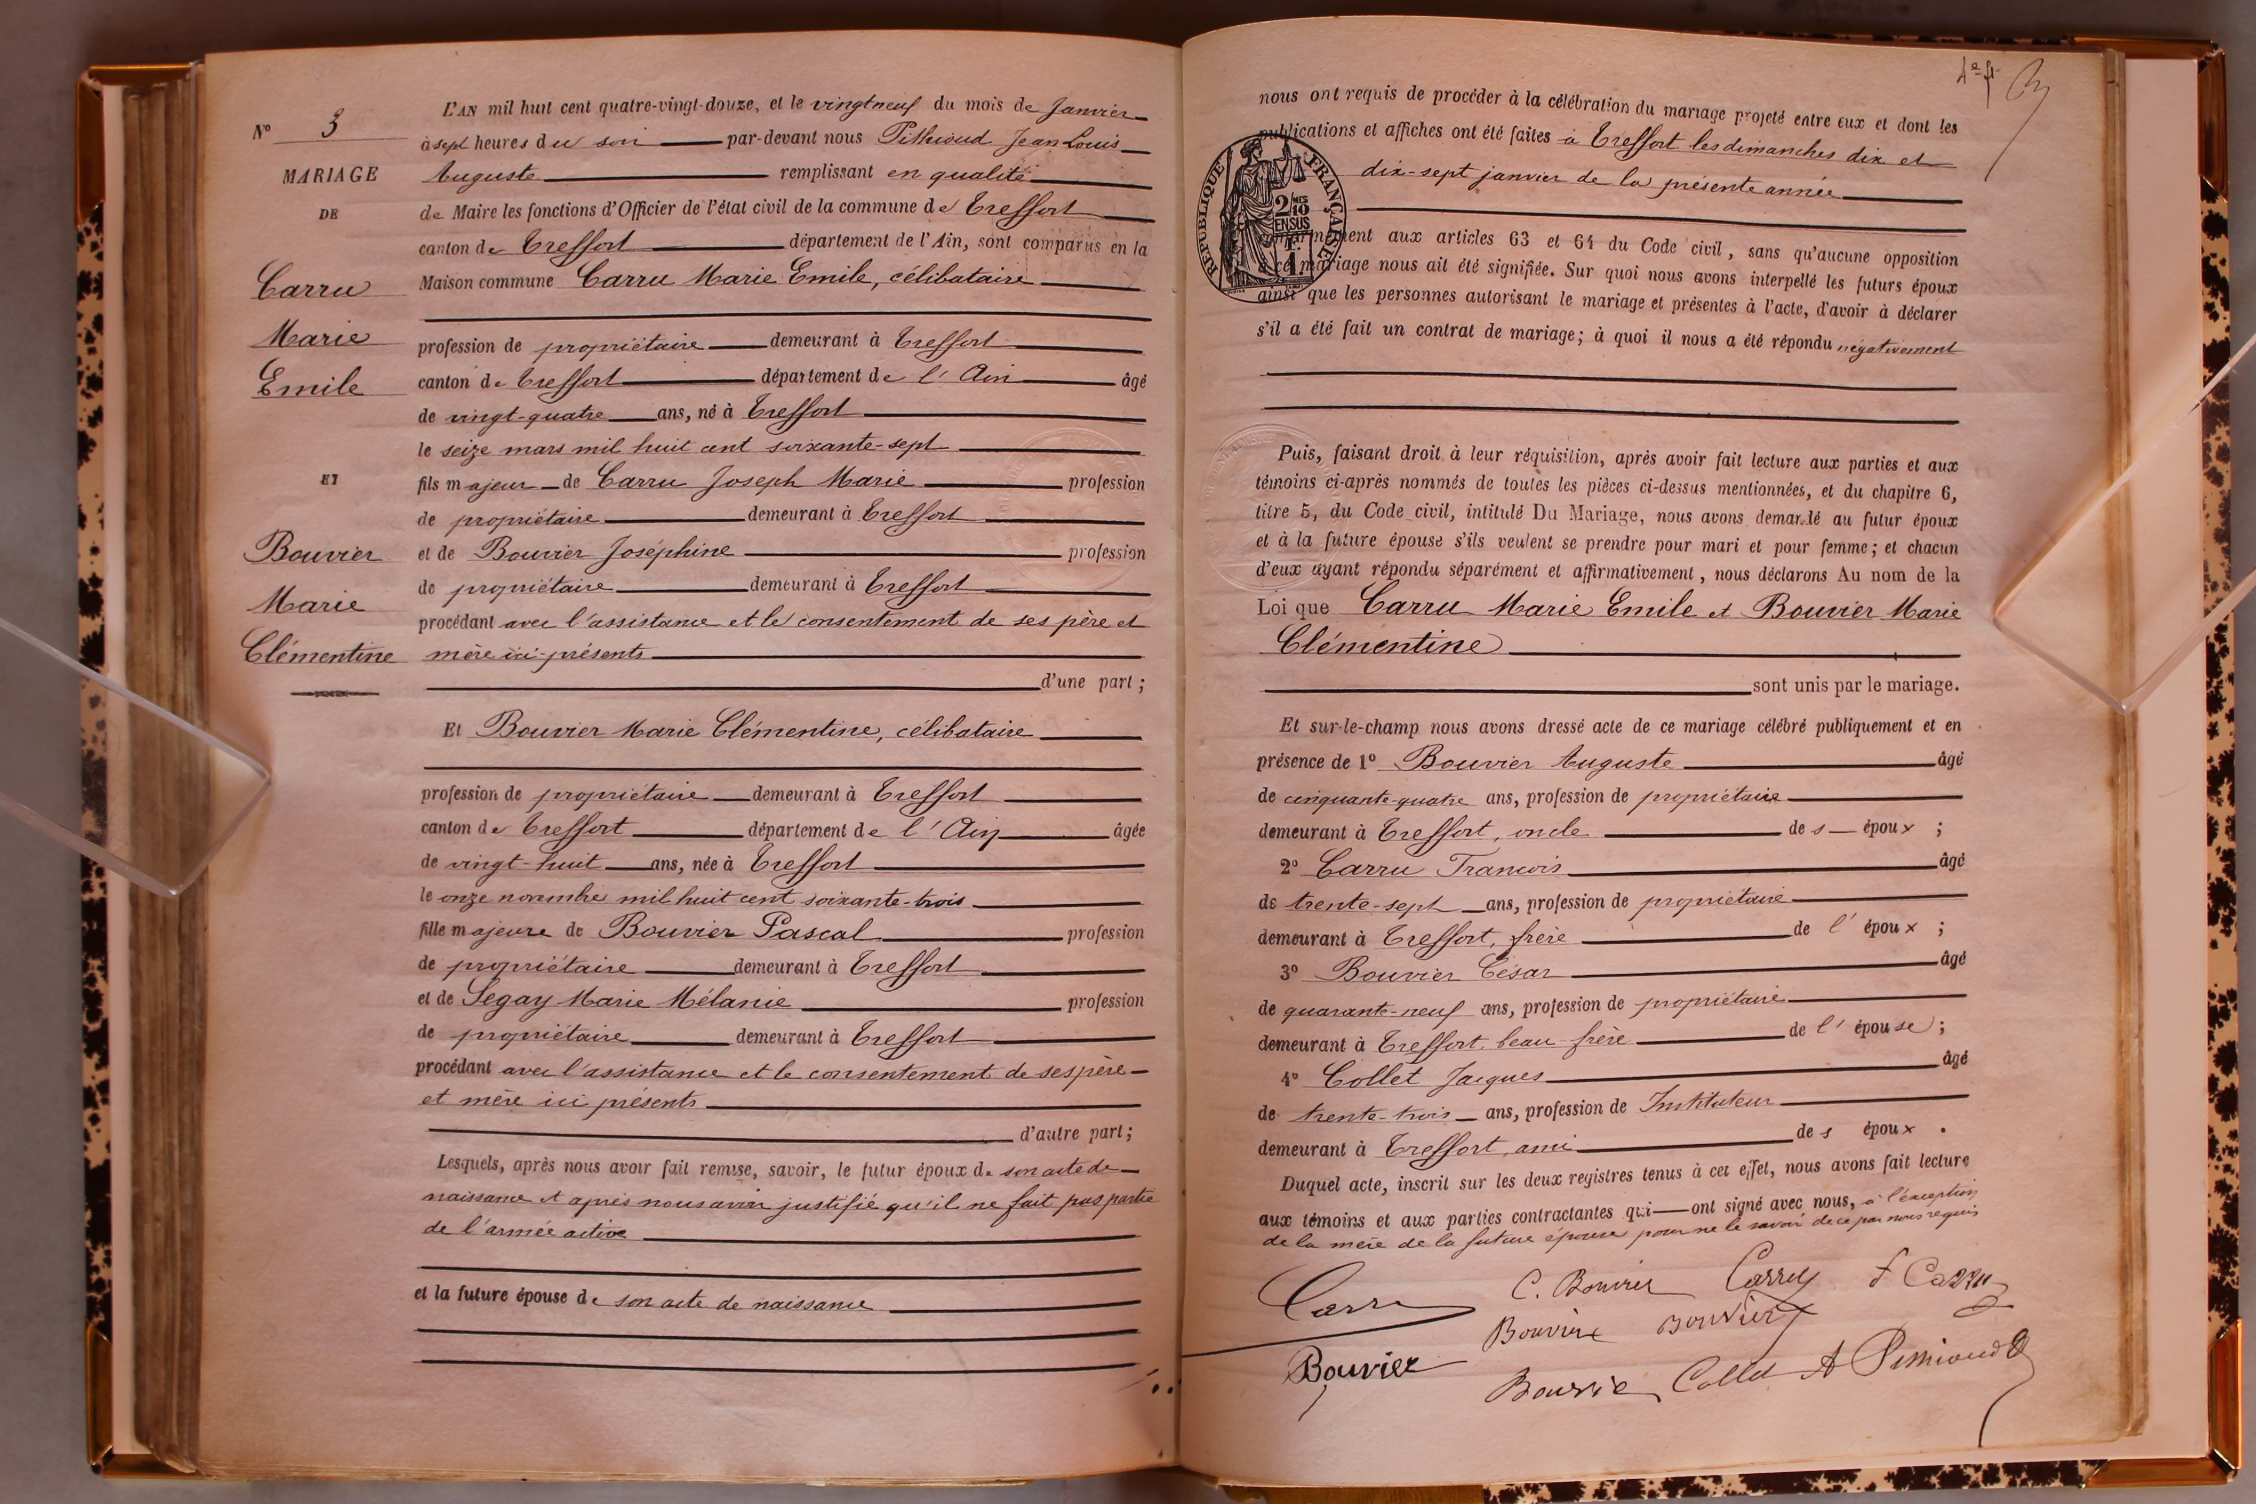 N° 3
MARIAGE
DE
Carru
Marie
Emile
ET
Bouvier
Marie
Clémentine
L'AN mil huit cent quatre-vingt-douze, et le vingt neuf du mois de Janvier
à sept heures du soir par-devant nous Pithioud Jean Louis
Auguste remplissant en qualité
de Maire les fonctions d'Officier de l'état civil de la commune de Treffort
canton de Treffort département de l'Ain, sont comparus en la
Maison commune Carru Marie Emile, célibataire
profession de propriétaire demeurant à Treffort
canton de Treffort département de l'Ain âgé
de vingt-quatre ans, né à Treffort
le seize mars mil huit cent soixante-sept
fils majeur de Carru Joseph Marie profession
de propriétaire demeurant à Treffort
et de Bouvier Joséphine profession
de propriétaire demeurant à Treffort
procédant avec l'assistance et le consentement de ses père et
mère ici-présents
d'une part ;
Et Bouvier Marie Clémentine, célibataire
profession de propriétaire demeurant à Treffort
canton de Treffort département de l'Ain âgée
de vingt-huit ans, née à Treffort
le onze novembre mil huit cent soixante-trois
fille majeure de Bouvier Pascal profession
de propriétaire demeurant à Treffort
et de Segay Marie Mélanie profession
de propriétaire demeurant à Treffort
procédant avec l'assistance et le consentement de ses père
et mère ici présents
d'autre part ;
Lesquels, après nous avoir fait remise, savoir, le futur époux de son acte de
naissance et après nous avoir justifié qu'il ne fait pas partie
de l'armée active
et la future épouse de son acte de naissance
4e ft
nous ont requis de procéder à la célébration du mariage projeté entre eux et dont les
publications et affiches ont été faites à Treffort les dimanches dix et
dix-sept janvier de la présente année
RÉPUBLIQUE FRANÇAISE
2/10
EN SUS
conformément aux articles 63 et 64 du Code civil, sans qu'aucune opposition
à ce mariage nous ait été signifiée. Sur quoi nous avons interpellé les futurs époux
ainsi que les personnes autorisant le mariage et présentes à l'acte, d'avoir à déclarer
s'il a été fait un contrat de mariage ; à quoi il nous a été répondu négativement
Puis, faisant droit à leur réquisition, après avoir fait lecture aux parties et aux
témoins ci-après nommés de toutes les pièces ci-dessus mentionnées, et du chapitre 6,
titre 5, du Code civil, intitulé Du Mariage, nous avons demandé au futur époux
et à la future épouse s'ils veulent se prendre pour mari et pour femme ; et chacun
d'eux ayant répondu séparément et affirmativement, nous déclarons Au nom de la
Loi que Carru Marie Emile et Bouvier Marie
Clémentine
sont unis par le mariage.
Et sur-le-champ nous avons dressé acte de ce mariage célébré publiquement et en
présence de 1° Bouvier Auguste âgé
de cinquante-quatre ans, profession de propriétaire
demeurant à Treffort, oncle des époux ;
2° Carru François âgé
de trente-sept ans, profession de propriétaire
demeurant à Treffort, frère de l'époux ;
3° Bouvier César âgé
de quarante-neuf ans, profession de propriétaire
demeurant à Treffort, beau-frère de l'épouse ;
4° Collet Jacques âgé
de trente-trois ans, profession de Instituteur
demeurant à Treffort, ami des époux.
Duquel acte, inscrit sur les deux registres tenus à cet effet, nous avons fait lecture
aux témoins et aux parties contractantes qui ont signé avec nous, à l'exception
de la mère de la future épouse pour ne le savoir de ce par nous requis
Carru C. Bouvier Carru f Carru
Bouvier Bouvier
Bouvier Bouvier Collet A Pithioud